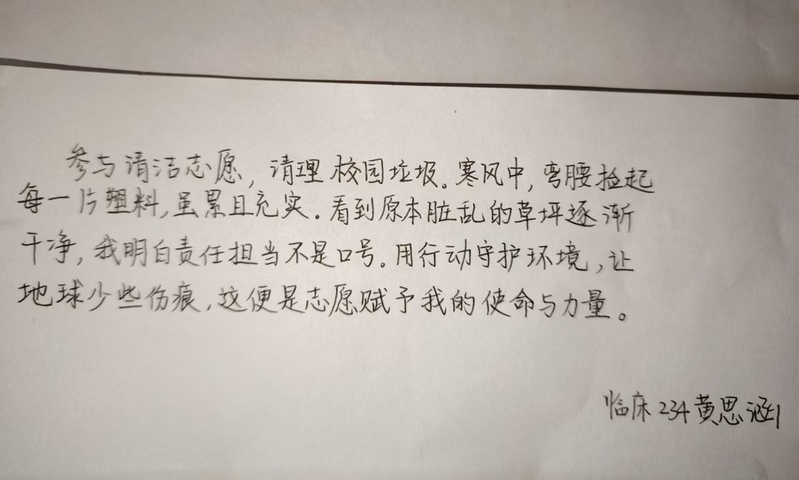 参与清洁志愿，清理校园垃圾。寒风中，弯腰捡起
每一片塑料，虽累且充实。看到原本脏乱的草坪逐渐
干净，我明白责任担当不是口号。用行动守护环境，让
地球少些伤痕，这便是志愿赋予我的使命与力量。
临床234黄思涵